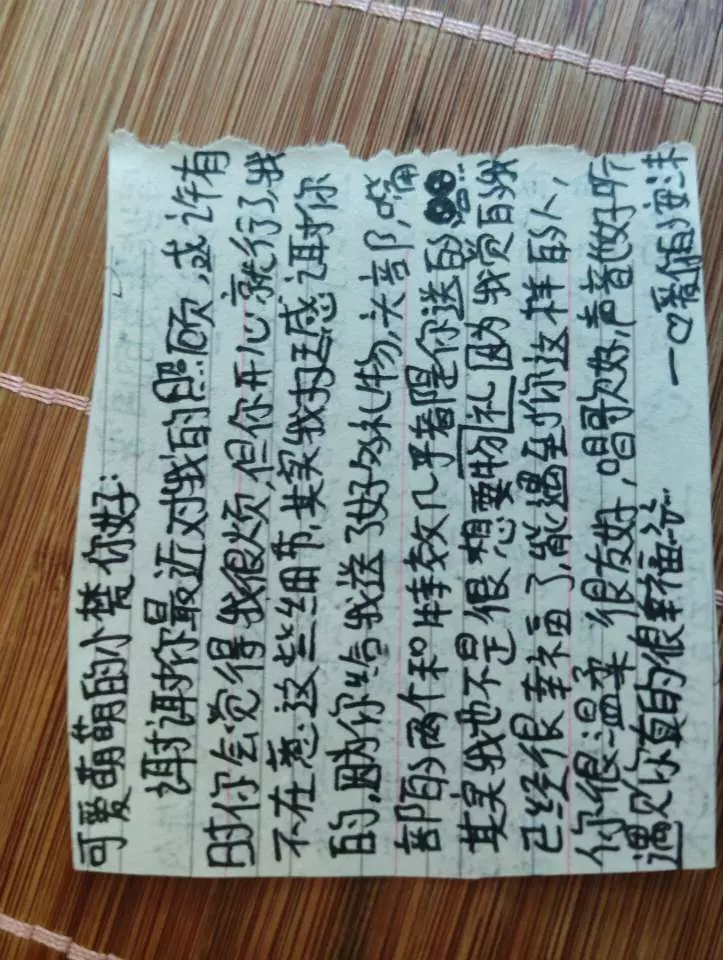 可爱萌萌的小楚你好:
谢谢你最近对我的照顾,或许有
时你会觉得我很烦,但你开心就行了,我
不在意这些细节,其实我好感谢你
的,因为你给我送了好多礼物,头音阝,嘴
部的两个和特效几乎都是你送的
其实我也不是很想要物礼因为我觉的我
已经很幸福了,能遇到你这样的人,
你很温柔 很友好,唱歌好,声音也好听
遇见你真的很幸福
一♡爱你的